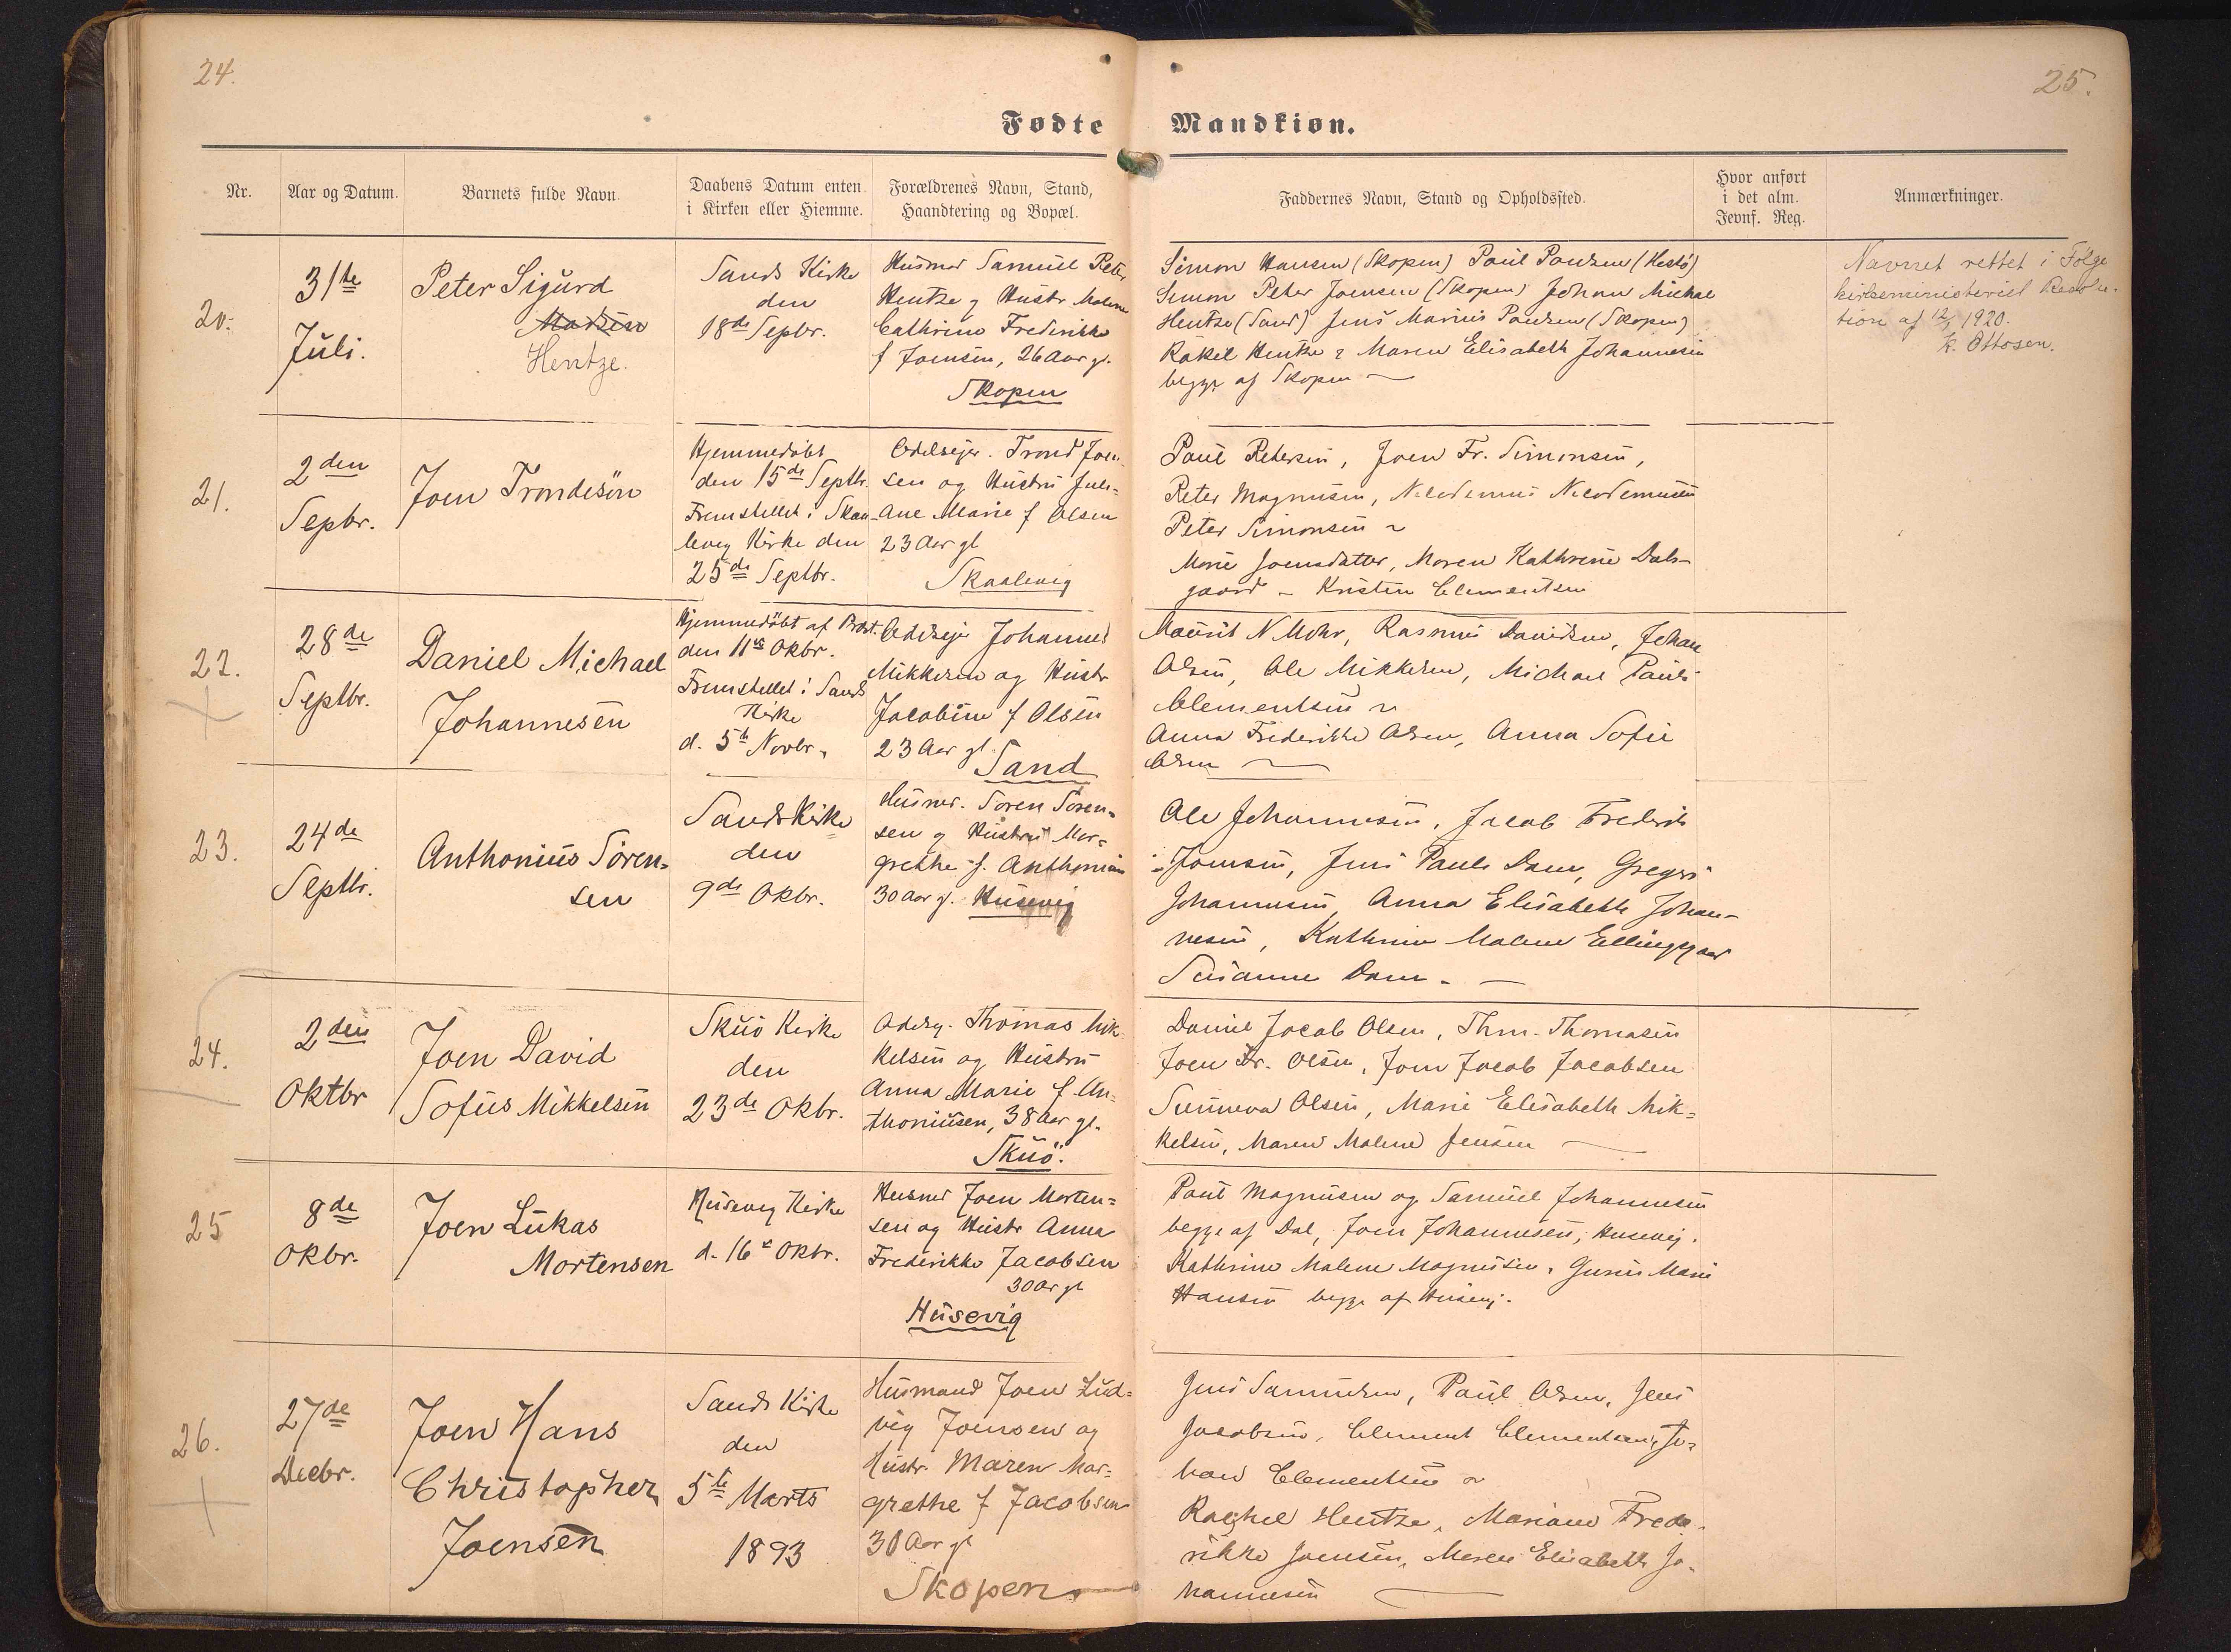 24.
25.
Fødte Mandkiøn.
Nr.
Aar og Datum.
Barnets fulde Navn.
Daabens Datum enten
i Kirken eller Hiemme.
Forældrenes Navn, Stand,
Haandtering og Bopæl.
Faddernes Navn, Stand og Opholdssted.
Hvor anført
i det alm.
Jevnf. Reg.
Anmærkninger.
20.
31te
Juli.
Peter Sigurd
Hentze.
Sands Kirke
den
18de Sepbr.
Husmd Samuel Peter
Hentze og Hustr Malene
Cathrine Frederikke
f Joensen, 26 Aar gl.
Skopen
Simon Hansen (Skopen) Paul Poulsen (Hestö)
Simon Peter Joensen (Skopen) Johan Michal
Hentze (Sand) Jens Marius Poulsen (Skopen)
Rakel Hentze & Maren Elisabeth Johannesen
begge af Skopen
Navnet rettet i Følge
kirkeministeriel Resolu-
tion af 12/1 1920.
K. Ottosen.
21.
2den
Sepbr.
Joen Trondesön
Hjemmedöbt
den 15de Septbr.
Fremstillet i Skaa-
levig Kirke den
25de Septbr.
Odelsejer. Trond Joen-
sen og Hustru Juli=
ane Marie f Olsen
23 Aar gl
Skaalevig
Poul Petersen, Joen Fr. Simonsen,
Peter Magnusen, Nicodemus Nicodemusen
Peter Simonsen
Marie Joensdatter, Maren Kathrine Dals-
gaard - Kristine Clementsen
22.
28de
Septbr.
Daniel Michael
Johannesen
Hjemmedöbt af Præst.
den 11te Okbr.
Fremstillet i Sands
Kirke
d. 5te Novbr.
Odelsejer Johannes
Mikkelsen og Hustr
Jacobine f Olsen
23 Aar gl.
Sand
Maurit N Mohr, Rasmus Davidsen, Johan
Olsen, Ole Mikkelsen, Michael Pauli
Clementsen
Anna Frederikke Olsen, Anna Sofie
Olsen
23.
24de
Septbr.
Anthonius Sören=
sen
Sands Kirke
den
9de Okbr.
Husmd. Sören Sören=
sen og Hustru Mar=
grethe f. Anthonius
30 Aar gl. Husevig
Ole Johannesen, Jacob Frederik
Joensen, Jens Pauli Dam, Gregers
Johannesen, Anna Elisabeth Johan-
nesen, Kathrine Malene Ellingsgaard
Susanne Dam.
24.
2den
Oktbr
Joen David
Sofus Mikkelsen
Skuö Kirke
den
23de Okbr.
Odelsej. Thomas Mik-
kelsen og Hustru
Anna Marie f. An=
thoniusen, 38 Aar gl.
Skuö.
Daniel Jacob Olsen, Thm. Thomasen
Joen Fr. Olsen, Joen Jacob Jacobsen
Sunneva Olsen, Marie Elisabeth Mik=
kelsen, Maren Malene Jensen
25
8de
Okbr.
Joen Lukas
Mortensen
Husevig Kirke
d. 16de Oktbr.
Husmd Joen Morten=
sen og Hustr Anna
Frederikke Jacobsen
30 Ar gl
Husevig
Poul Magnusen og Samuel Johannesen
begge af Dal, Joen Johannesen, Husevig.
Kathrine Malene Magnusen, Marie
Hansen begge af Husevig.
26.
27de
Decbr.
Joen Hans
Christopher
Joensen
Sands Kirke
den
5te Marts
1893
Husmand Joen Lud=
vig Joensen og
Hustr. Maren Mar=
grethe f Jacobsen
30 Aar gl
Skopen
Jens Samuelsen, Paul Olsen, Jens
Jacobsen, Clement Clementsen, Jo=
han Clementsen
Raghel Hentze, Mariane Frede-
rikke Joensen, Maren Elisabeth Jo-
hannesen